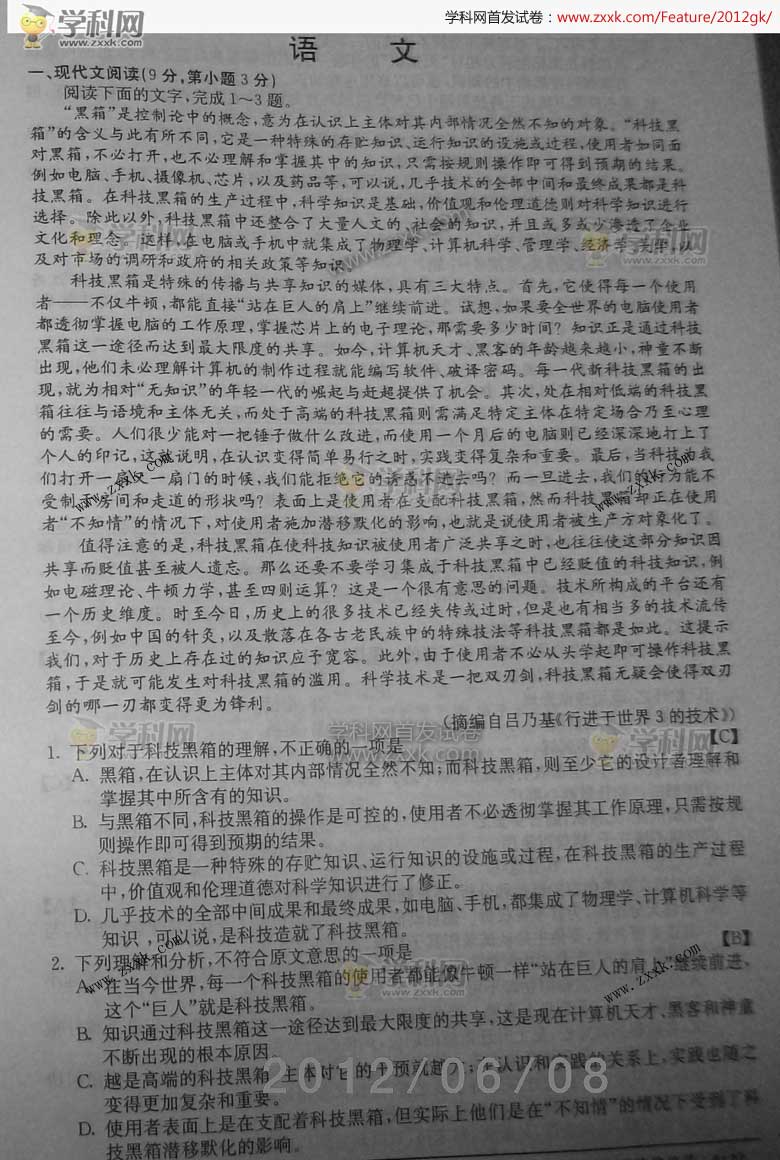 学科网
www.zxxk.com
学科网首发试卷：www.zxxk.com/Feature/2012gk/
语 文
一、现代文阅读(9分,第小题3分)
阅读下面的文字,完成1～3题。
“黑箱”是控制论中的概念,意为在认识上主体对其内部情况全然不知的对象。“科技黑
箱”的含义与此有所不同,它是一种特殊的存贮知识、运行知识的设施或过程,使用者如同面
对黑箱,不必打开,也不必理解和掌握其中的知识,只需按规则操作即可得到预期的结果。
例如电脑、手机、摄像机、芯片,以及药品等,可以说,几乎技术的全部中间和最终成果都是科
技黑箱。在科技黑箱的生产过程中,科学知识是基础,价值观和伦理道德则对科学知识进行
选择。除此以外,科技黑箱中还整合了大量人文的、社会的知识,并且或多或少渗透了企业
文化和理念。这样,在电脑或手机中就集成了物理学、计算机科学、管理学、经济学、美学,以
及对市场的调研和政府的相关政策等知识
科技黑箱是特殊的传播与共享知识的媒体,具有三大特点。首先,它使得每一个使用
者——不仅牛顿,都能直接“站在巨人的肩上”继续前进。试想,如果要全世界的电脑使用者
都透彻掌握电脑的工作原理,掌握芯片上的电子理论,那需要多少时间?知识正是通过科技
黑箱这一途径而达到最大限度的共享。如今,计算机天才、黑客的年龄越来越小,神童不断
出现,他们未必理解计算机的制作过程就能编写软件、破译密码。每一代新科技黑箱的出
现,就为相对“无知识”的年轻一代的崛起与赶超提供了机会。其次,处在相对低端的科技黑
箱往往与语境和主体无关,而处于高端的科技黑箱则需满足特定主体在特定场合乃至心理
的需要。人们很少能对一把锤子做什么改进,而使用一个月后的电脑则已经深深地打上了
个人的印记,这就说明,在认识变得简单易行之时,实践变得复杂和重要。最后,当科技为我
们打开一扇又一扇门的时候,我们能拒绝它的诱惑不进去吗?而一旦进去,我们的行为能不
受制于房间和走道的形状吗?表面上是使用者在支配科技黑箱,然而科技黑箱却正在使用
者“不知情”的情况下,对使用者施加潜移默化的影响,也就是说使用者被生产方对象化了。
值得注意的是,科技黑箱在使科技知识被使用者广泛共享之时,也往往使这部分知识因
共享而贬值甚至被人遗忘。那么还要不要学习集成于科技黑箱中已经贬值的科技知识,例
如电磁理论、牛顿力学,甚至四则运算?这是一个很有意思的问题。技术所构成的平台还有
一个历史维度。时至今日,历史上的很多技术已经失传或过时,但是也有相当多的技术流传
至今,例如中国的针灸,以及散落在各古老民族中的特殊技法等科技黑箱都是如此。这提示
我们,对于历史上存在过的知识应予宽容。此外,由于使用者不必从头学起即可操作科技黑
箱,于是就可能发生对科技黑箱的滥用。科学技术是一把双刃剑,科技黑箱无疑会使得双刃
剑的哪一刃都变得更为锋利。
(摘编自吕乃基《行进于世界3的技术》)
1. 下列对于科技黑箱的理解,不正确的一项是 【C】
A. 黑箱,在认识上主体对其内部情况全然不知;而科技黑箱,则至少它的设计者理解和
掌握其中所含有的知识。
B. 与黑箱不同,科技黑箱的操作是可控的,使用者不必透彻掌握其工作原理,只需按规
则操作即可得到预期的结果。
C. 科技黑箱是一种特殊的存贮知识、运行知识的设施或过程,在科技黑箱的生产过程
中,价值观和伦理道德对科学知识进行了修正。
D. 几乎技术的全部中间成果和最终成果,如电脑、手机,都集成了物理学、计算机科学等
知识,可以说,是科技造就了科技黑箱。
2. 下列理解和分析,不符合原文意思的一项是 【B】
A. 在当今世界,每一个科技黑箱的使用者都能像牛顿一样“站在巨人的肩上”继续前进,
这个“巨人”就是科技黑箱。
B. 知识通过科技黑箱这一途径达到最大限度的共享,这是现在计算机天才、黑客和神童
不断出现的根本原因
C. 越是高端的科技黑箱,主体对它的干预就越大;在认识和实践的关系上,实践也随之
变得更加复杂和重要。
D. 使用者表面上是在支配着科技黑箱,但实际上他们是在“不知情”的情况下受到了科
技黑箱潜移默化的影响。
2012/06/08